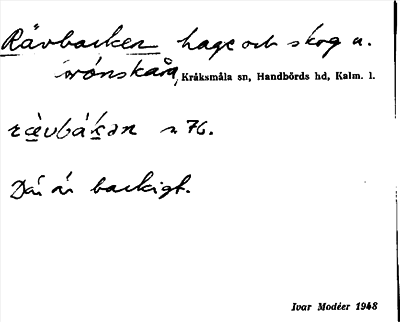 Rävbacken hage och skog u.
Kråksmåla sn, Handbörds hd, Kalm. l.
rä̀vbákən n 76.
Där är backigt.
Ivar Modéer 1948